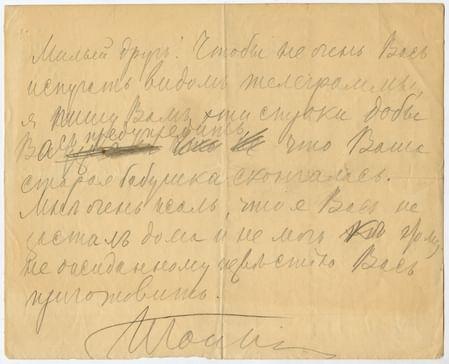 Милый другъ! Чтобы не очень Васъ
испугать видомъ телеграммы,
я пишу Вамъ эти строки дабы
Васъ предупредить что Ваша
старая бабушка скончалась.
Мнѣ очень жаль, что я Васъ не
засталъ дома и не могъ к
не ожиданному извѣстію Васъ
приготовить.